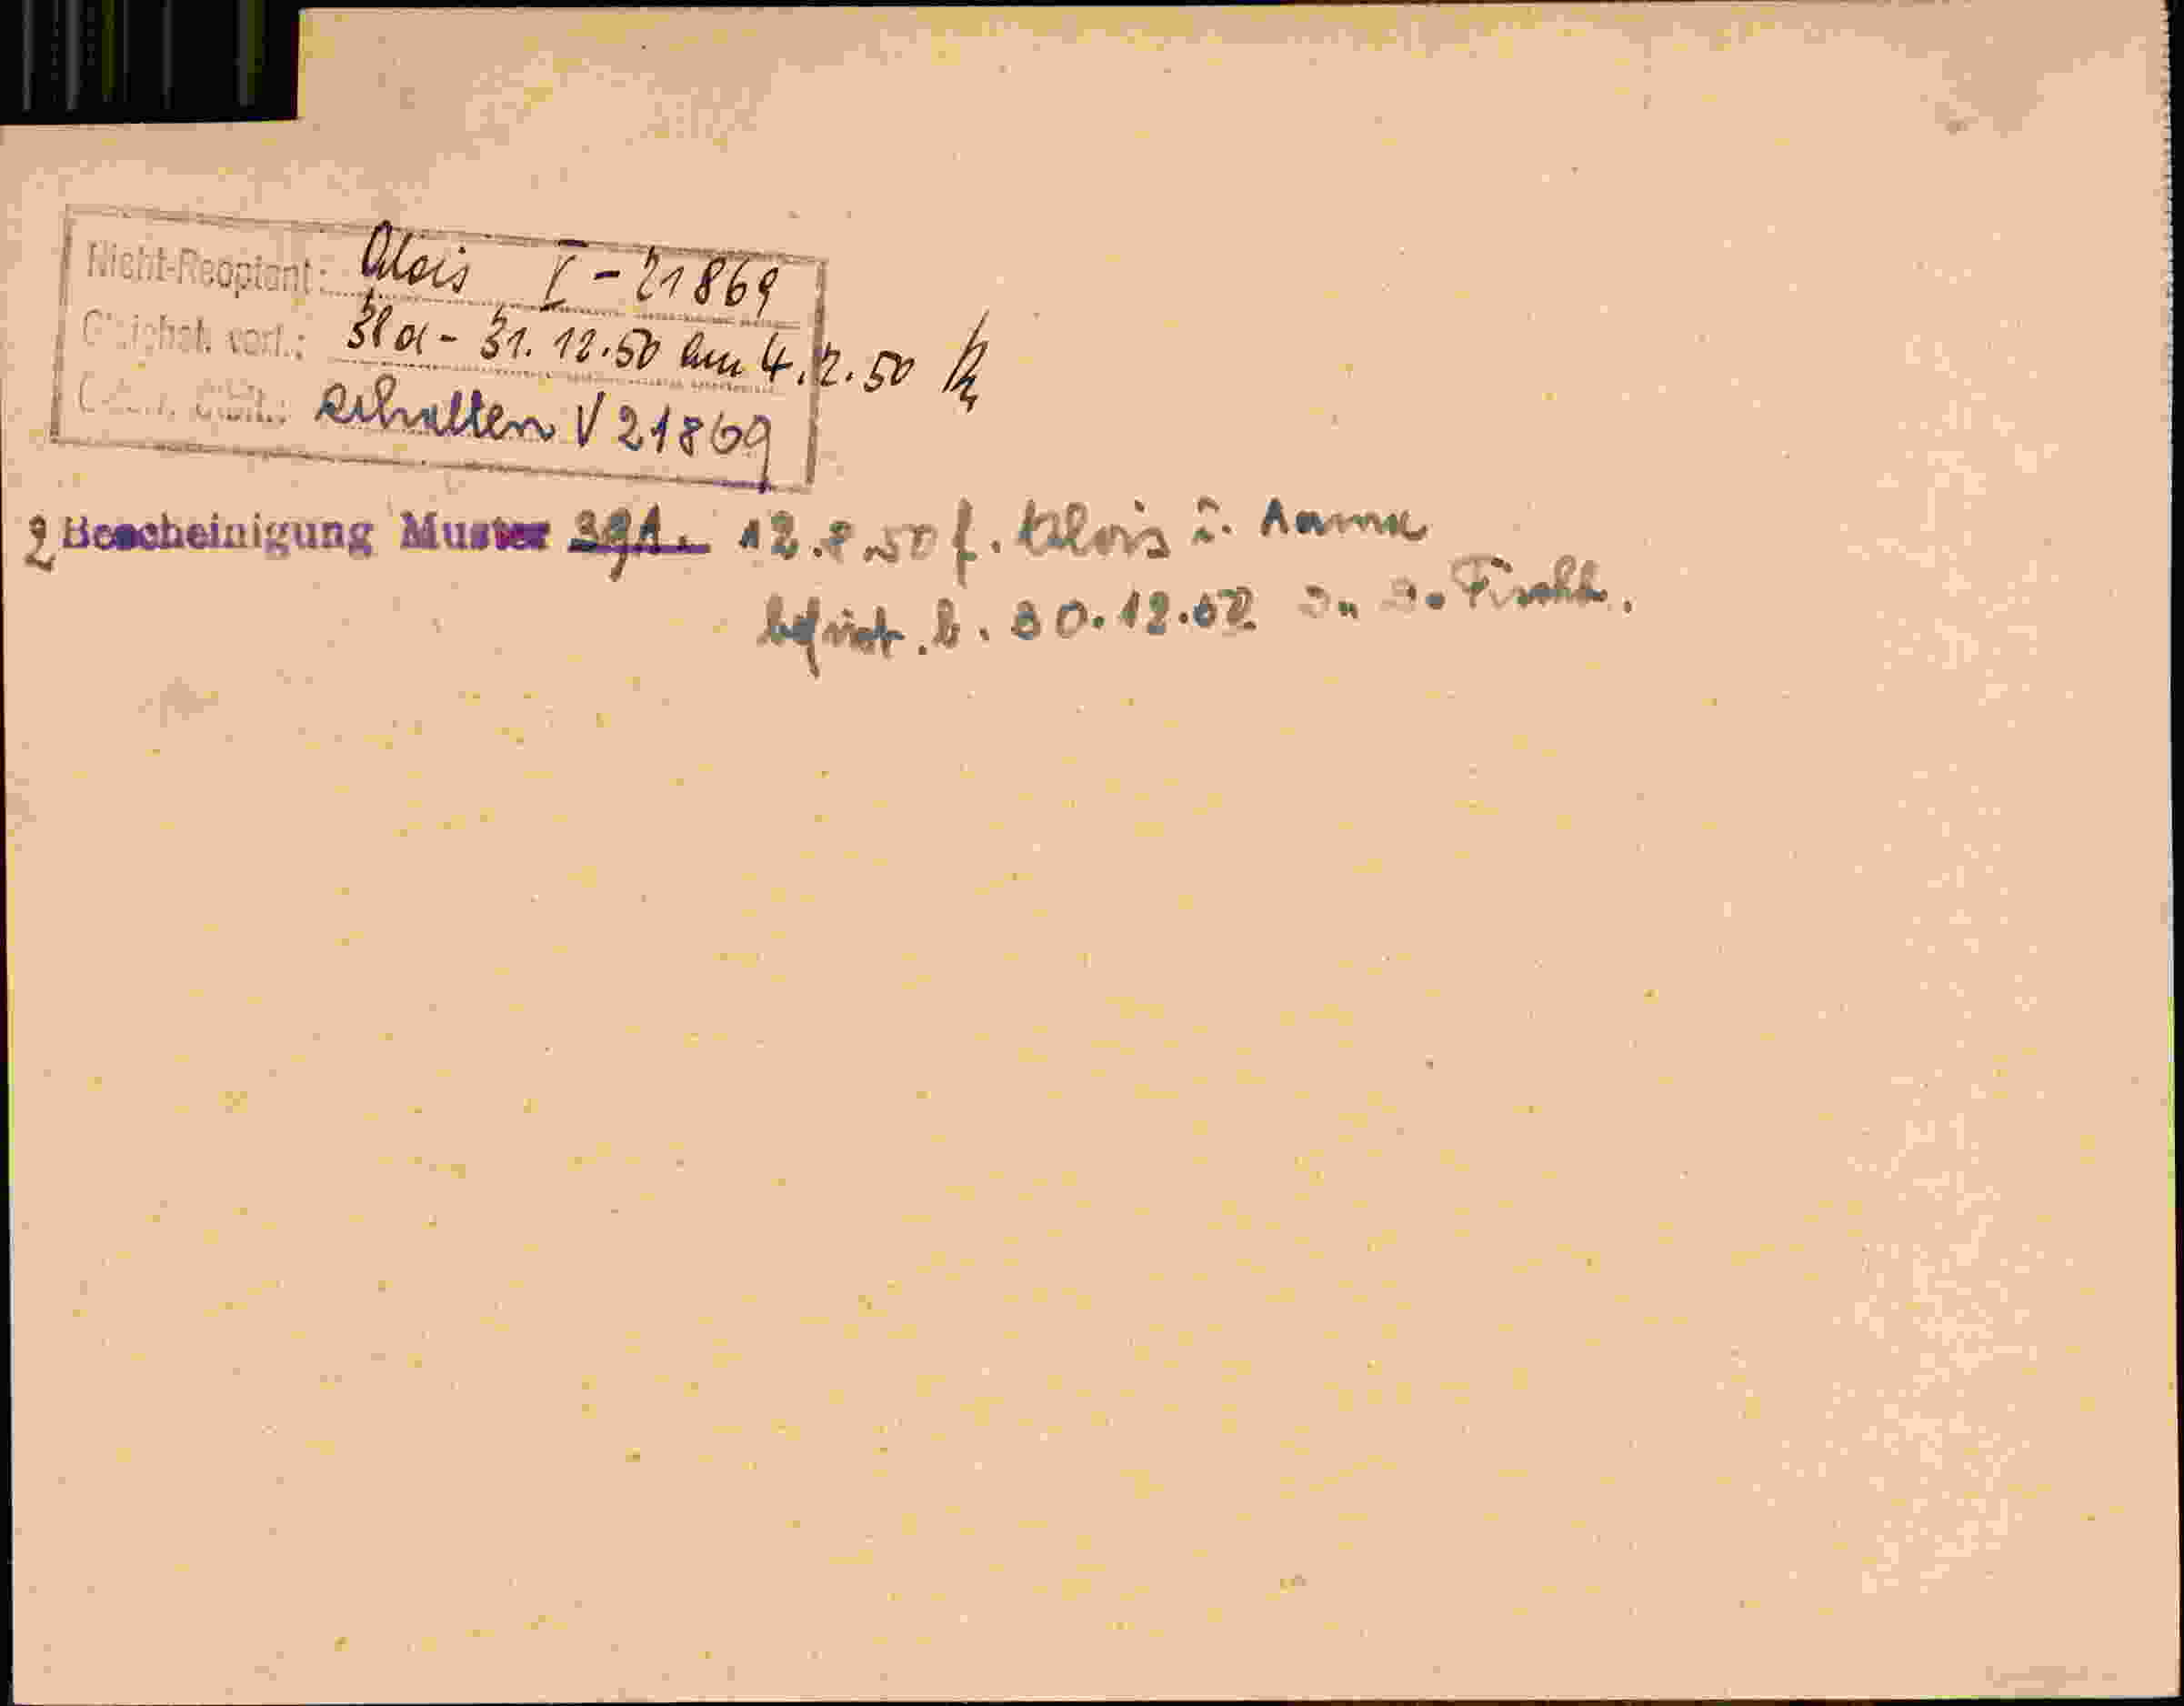 Nicht-Reoptant: Alois I-21869
Gleichst. verl.: 31.12.50 am 4.2.50
erhalten V 21869
2 Bescheinigung Muster 391. 12.8.50 f. Alois u. Anna
befrist. b. 30.12.52